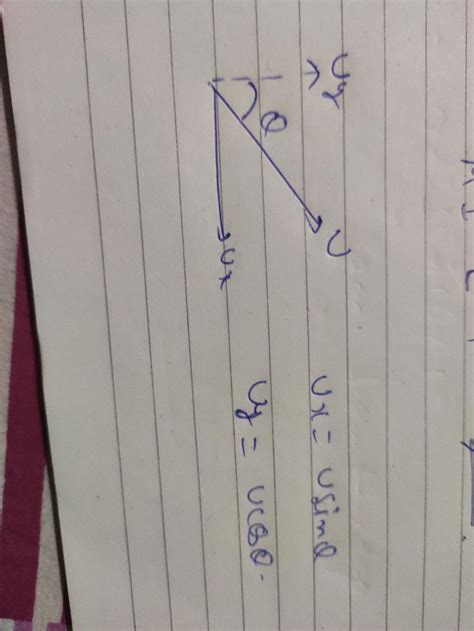 Uy
θ
U
Ux
Ux = U sinθ
Uy = U cosθ.